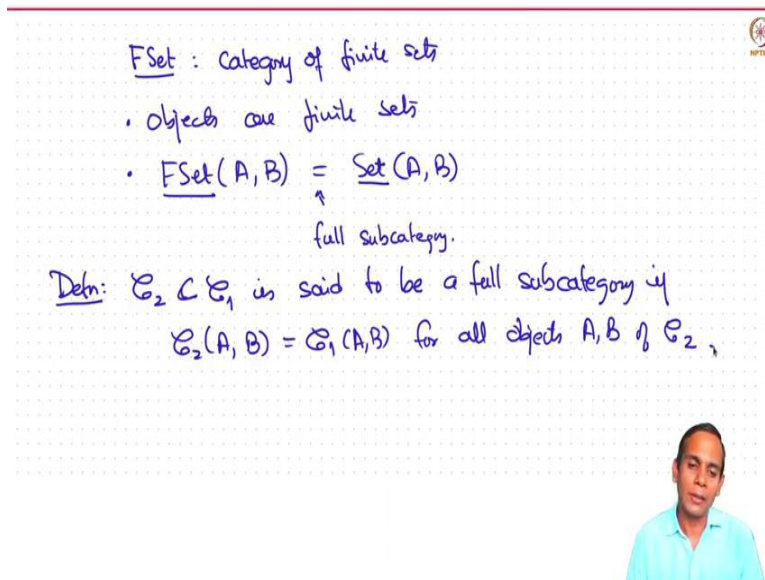 FSet : Category of finite sets
• Objects are finite sets
• FSet(A, B) = Set(A, B)
↑
full subcategory.
Defn: 𝒞₂ ⊂ 𝒞₁ is said to be a full subcategory if
𝒞₂(A, B) = 𝒞₁(A, B) for all objects A, B of 𝒞₂.
NPTEL